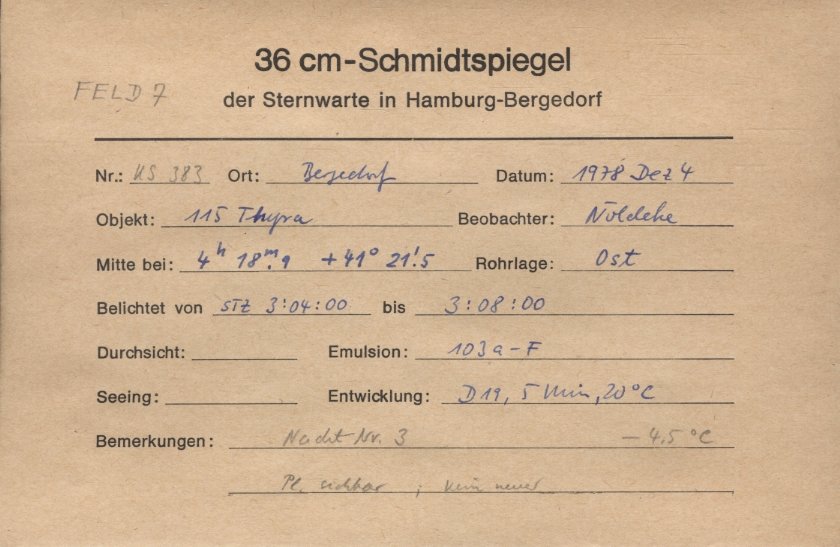 36 cm-Schmidtspiegel
FELD 7
der Sternwarte in Hamburg-Bergedorf
Nr.: KS 383 Ort: Bergedorf Datum: 1978 Dez 4
Objekt: 115 Thyra Beobachter: Nöldeke
Mitte bei: 4h 18m.9 +41° 21'.5 Rohrlage: Ost
Belichtet von STZ 3:04:00 bis 3:08:00
Durchsicht: Emulsion: 103a-F
Seeing: Entwicklung: D19, 5 Min, 20°C
Bemerkungen: Nacht Nr. 3 -4.5 °C
Pl. sichbar ; kein neuer